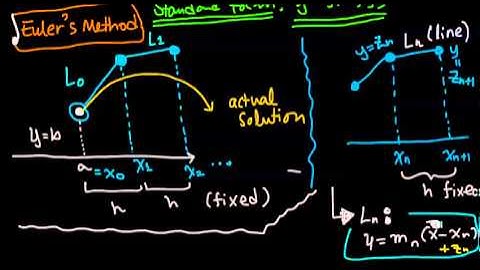 Euler's Method
Standard form:
L₀
L₁
actual
solution
y=b
a=x₀
x₁
x₂ ...
h
h
(fixed)
Lₙ (line)
y=zₙ
y
=
zₙ₊₁
xₙ
xₙ₊₁
h fixed
Lₙ:
y=mₙ(x-xₙ)
+zₙ